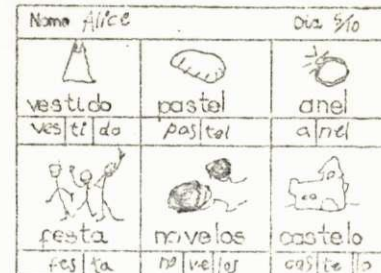 Nome Alice Dia 5/10
vestido pastel anel
ves|ti|do pas|tel a|nel
festa novelos castelo
fes|ta no|ve|los cas|te|lo